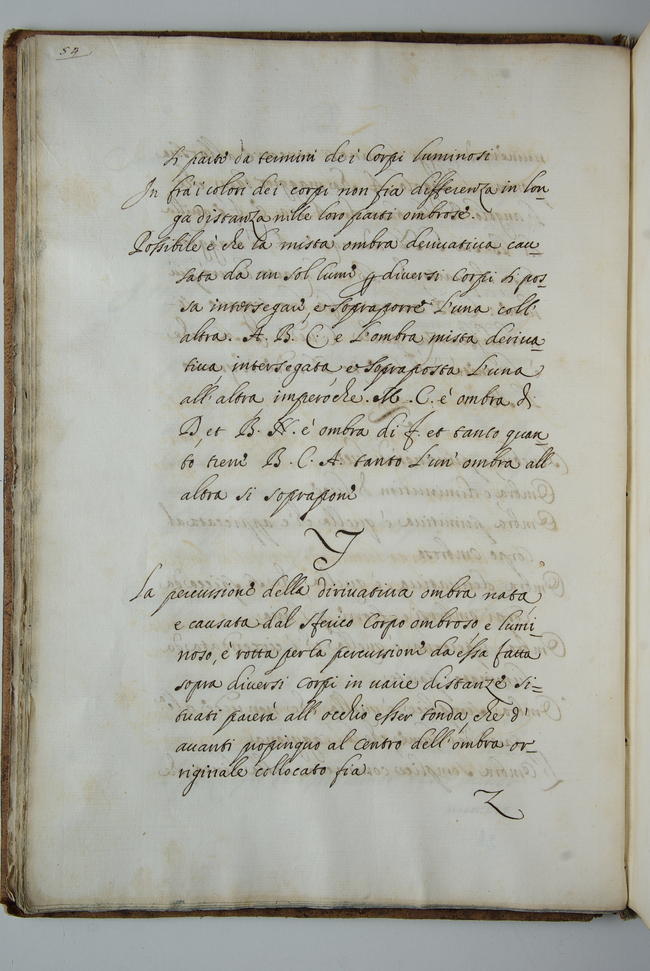 54
si parte da termini de i Corpi luminosi
In fra i colori de i corpi non fia differenza in lon-
ga distanza nille loro parti ombrose.
Possibile è che la mista ombra derivativa cau-
sata da un sol lume diversi Corpi si pos-
sa intersegare, e sopraporre L'una coll'
altra. A. B. C. e L'ombra mista deriva-
tiva intersegata e sopraposta L'una
all'altra imperoche. M. C. è ombra di
D, et B. N. è ombra di f. et tanto quan-
to tiene B. C. A. tanto L'un' ombra all'
altra si soprapone
Y
La percussione della dirivativa ombra nata
e causata dal sferico Corpo ombroso e lumi-
noso, è rotta per la percussione da essa fatta
sopra diversi Corpi in varie distanze si=
tuati parerà all'occhio esser tonda che d'
avanti popinquo al Centro dell'ombra or-
riginale collocato fia
Z